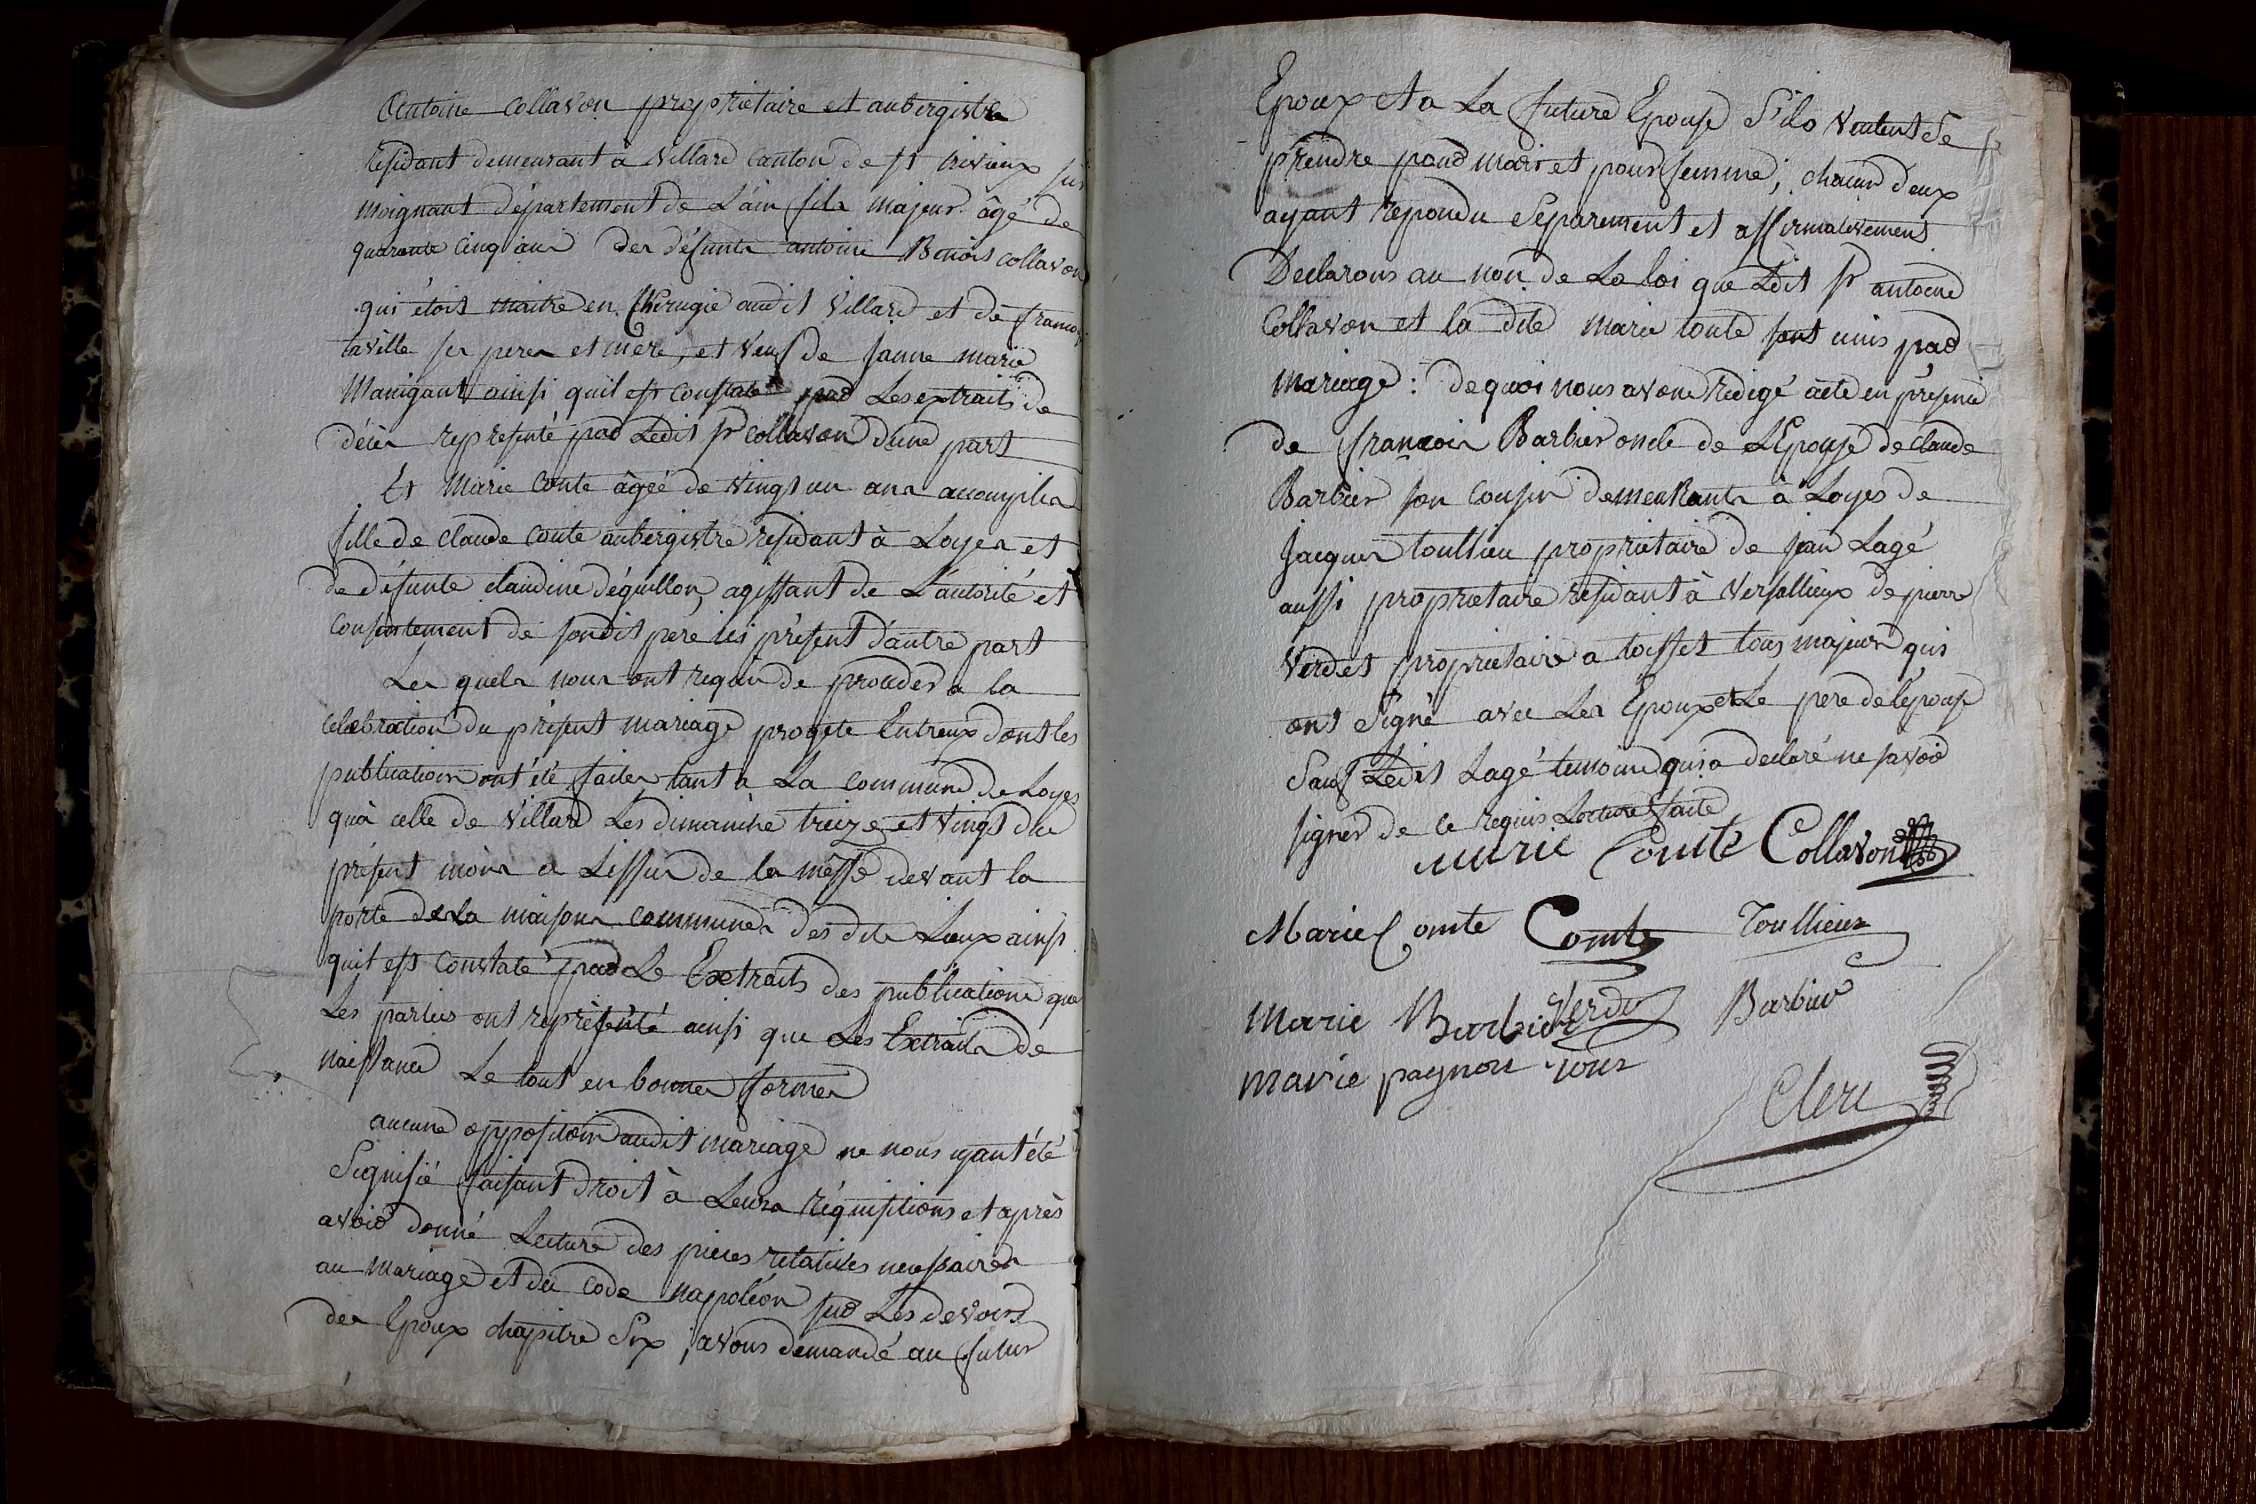 Antoine Collavon proprietaire et aubergiste
résidant demeurant à villard canton de st trivieux sur
moignant département de L'ain fils majeur âgé de
quarante cinq ans des défunts antoine Benois collavon
qui étoit maitre en Chirugie audit villard et de francoise
laville ses peres et mère, et veuf de janne marie
Manigant ainsi quil est constaté par Les extraits de
décès representé par Ledit sr collavon d'une part
Et Marie Conte âgée de vingt un ans accomplis
fille de claude conte aubergiste résidant à Loyes et
de défunte claudine déguillon, agissant de L'autorité et
consentement de sondit père ici présent d'autre part
Les quels nous ont requis de proceder a la
celebration du présent mariage progeté Entreux dont les
publications ont été faites tant a La commune de Loyes
qu'à celle de villard Les dimanche treize et vingt du
présent mois a L'issue de la messe devant la
porte de La maisons communes des dits Lieux ainsi
quil est constaté par Le Extraits des publications que
Les parties ont représenté ainsi que Les Extraits de
naissance Le tout en bonnes formes
aucune opposition audit mariage ne nous ayant été
Signifié faisant droit à Leurs réquisitions et après
avoir donné Lecture des pieces relatives necessaires
au mariage et du code napoléon sur Les devoirs
des Epoux chapitre Six, avons demandé au futur
Epoux et a La future Epouse S'ils veulent Se
prendre pour mari et pour femme; chacun d'eux
ayant repondu Separement et affirmativement
Declarons au nom de La loi que Ledit sr antoine
Collavon et la dite marie conte sont unis par
mariage: de quoi nous avons redigé acte en présence
de francois Barbier oncle de L'Epouse de claude
Barbier son cousin demeurants à Loyes de
jacques toullieu proprietaire de jean Lagé
aussi proprietaire résidant à versallieux de pierre
verdet proprietaire a toisset tous majeurs qui
ont Signé avec Les Epoux et Le pere de l'epouse
Sauf Ledit Lagé temoin qui a declaré ne savoir
signer de ce requis Lecture faite
Marie Comte Collavon
Marie Comte Comte Toullieux
Marie Barbier Verdet Barbier
marie pagnon
Clerc